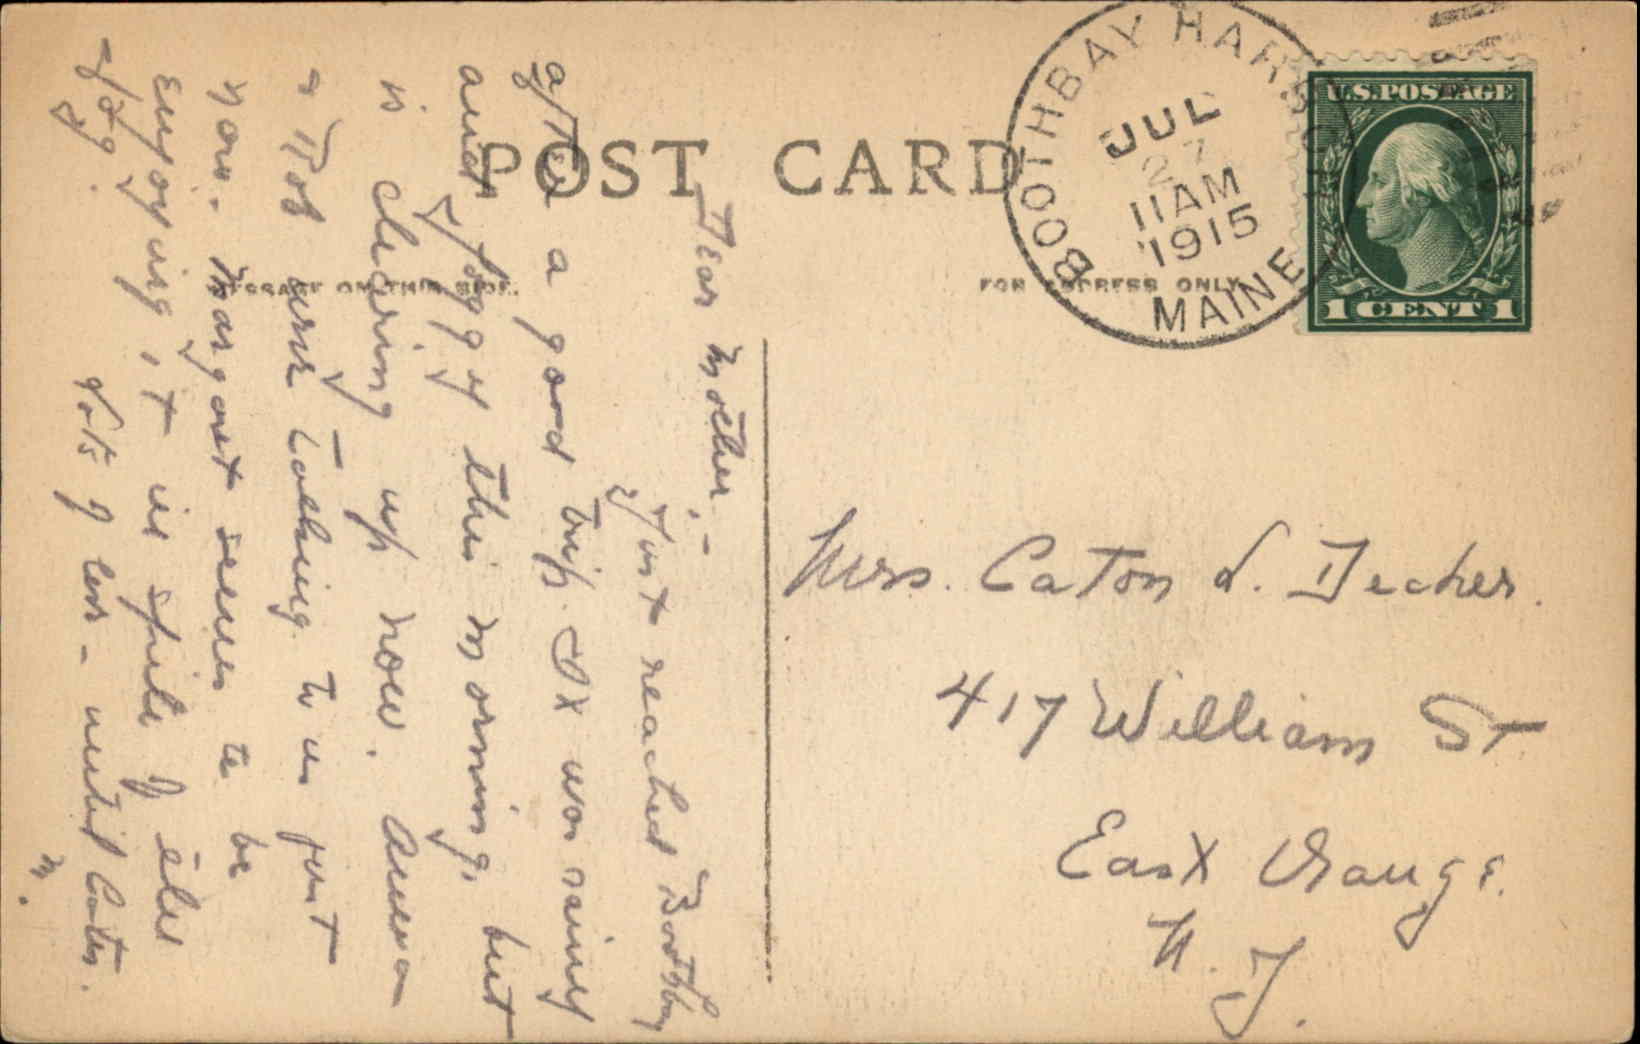 POST CARD
MESSAGE ON THIS SIDE.
FOR ADDRESS ONLY
BOOTHBAY HARBOR
JUL
27
11AM
1915
MAINE
U.S. POSTAGE
1 CENT 1
Dear Mother:-
Just reached Boothbay
after a good trip. It was rainy
and foggy this morning, but
is clearing up now.
talking to us just
now. Margaret seems to be
enjoying it in spite of the
fog. Lots of love - until later.
M.
Mrs. Caton L. Decker.
417 William St
East Orange.
N. J.